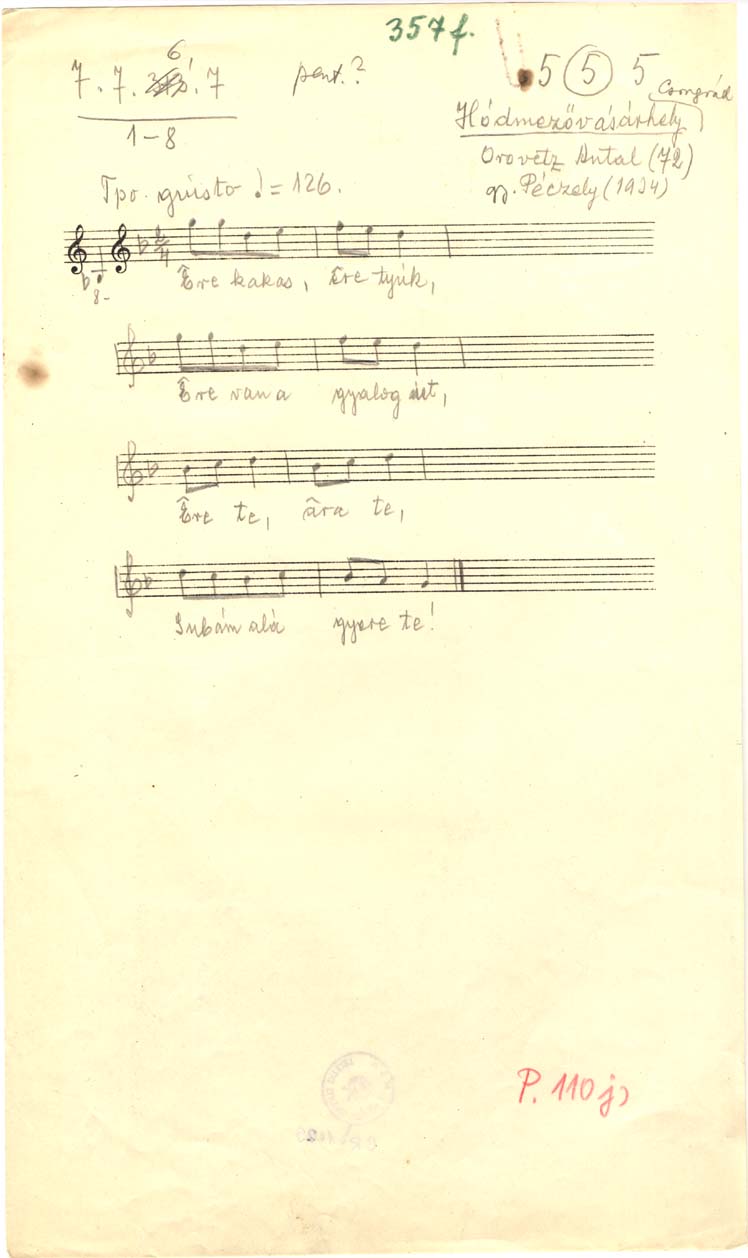 357 f.
6
7. 7. 3+3. 7
pent.?
5 5 5
Csongrád
1-8
Hódmezővásárhely
Orovetz Antal (72)
gy. Péczely (1934)
Tpo. giusto ♩= 126.
8-
Êre kakas, êre tyúk,
Êre van a gyalog út,
Êre te, âra te,
Subám alá gyere te!
P. 110 j)